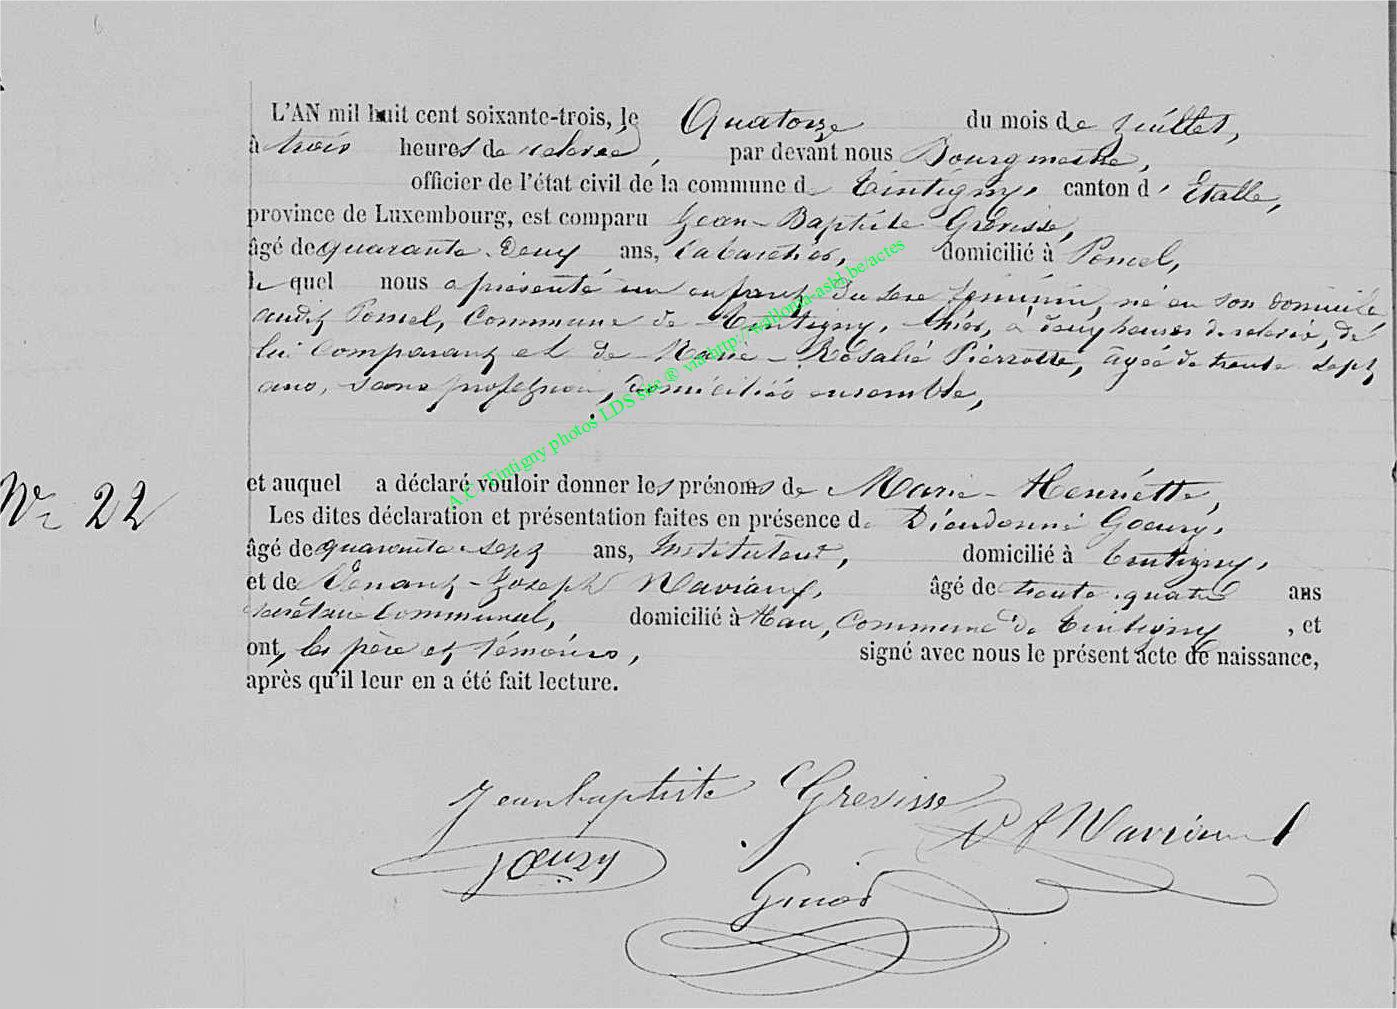 L'AN mil huit cent soixante-trois, le Quatorze du mois de Juillet,
à trois heures de relevée, par devant nous Bourgmestre,
officier de l'état civil de la commune de Tintigny, canton d'Etalle,
province de Luxembourg, est comparu Jean-Baptiste Grévisse,
âgé de quarante-deux ans, Cabaretier, domicilié à Poncel,
lequel nous a présenté un enfant du sexe féminin, né en son domicile
audit Poncel, Commune de Tintigny, hier, à deux heures de relevée, de
lui Comparant et de Marie-Rosalie Pierrotte, âgée de trente sept
ans, sans profession, domiciliés ensemble,
et auquel a déclaré vouloir donner les prénoms de Marie-Henriette,
Les dites déclaration et présentation faites en présence de Dieudonné Goeury,
âgé de quarante-sept ans, Instituteur, domicilié à Tintigny,
et de Venant-Joseph Naviaux, âgé de trente-quatre ans
secrétaire Communal, domicilié à Han, Commune de Tintigny, et
ont, les père et témoins, signé avec nous le présent acte de naissance,
après qu'il leur en a été fait lecture.
N° 22
A.C. Tintigny photos LDS site ® via http://wallonia-asbl.be/actes
Jeanbaptiste Grevisse